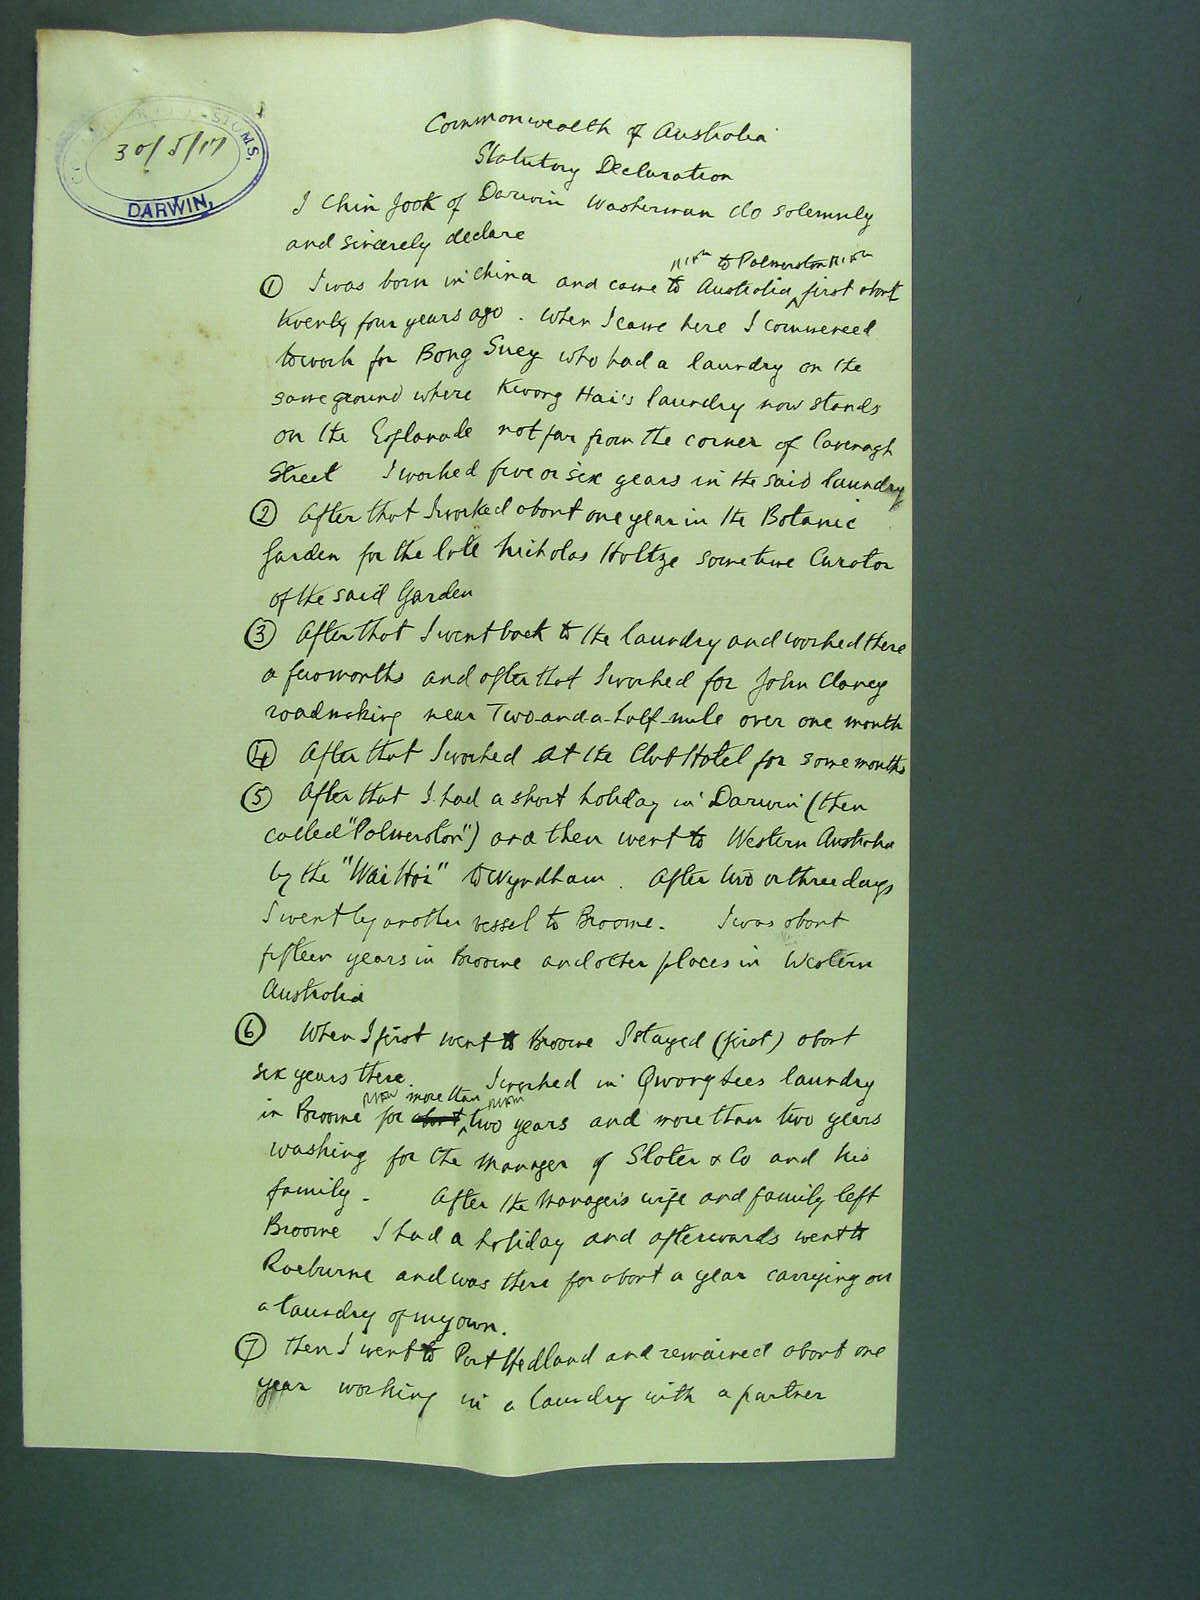 CUSTOMS.
30/5/17
DARWIN,
Commonwealth of Australia
Statutory Declaration
I Chin Jook of Darwin Washerman do solemnly
and sincerely declare
to Palmerston
① I was born in China and came to Australia first about
twenty four years ago. When I came here I commenced
to work for Bong Suey who had a laundry on the
same ground where Kwong Hai's laundry now stands
on the Esplanade not far from the corner of Cavenagh
Street I worked five or six years in the said laundry
② After that I worked about one year in the Botanic
Garden for the late Nicholas Holtze sometime Curator
of the said Garden
③ After that I went back to the laundry and worked there
a few months and after that I worked for John Claney
roadmaking near Two-and-a-half-mile over one month
④ After that I worked at the Club Hotel for some months
⑤ After that I had a short holiday in Darwin (then
called "Palmerston") and then went to Western Australia
by the "Wai Hoi" to Wyndham. After two or three days
I went by another vessel to Broome. I was about
fifteen years in Broome and other places in Western
Australia
⑥ When I first went to Broome I stayed (first) about
six years there. I worked in Qwong Sees laundry
more than
in Broome for about two years and more than two years
washing for the Manager of Sloter & Co and his
family. After the Manager's wife and family left
Broome I had a holiday and afterwards went to
Roeburne and was there for about a year carrying on
a laundry of my own.
⑦ Then I went to Port Hedland and remained about one
year working in a laundry with a partner